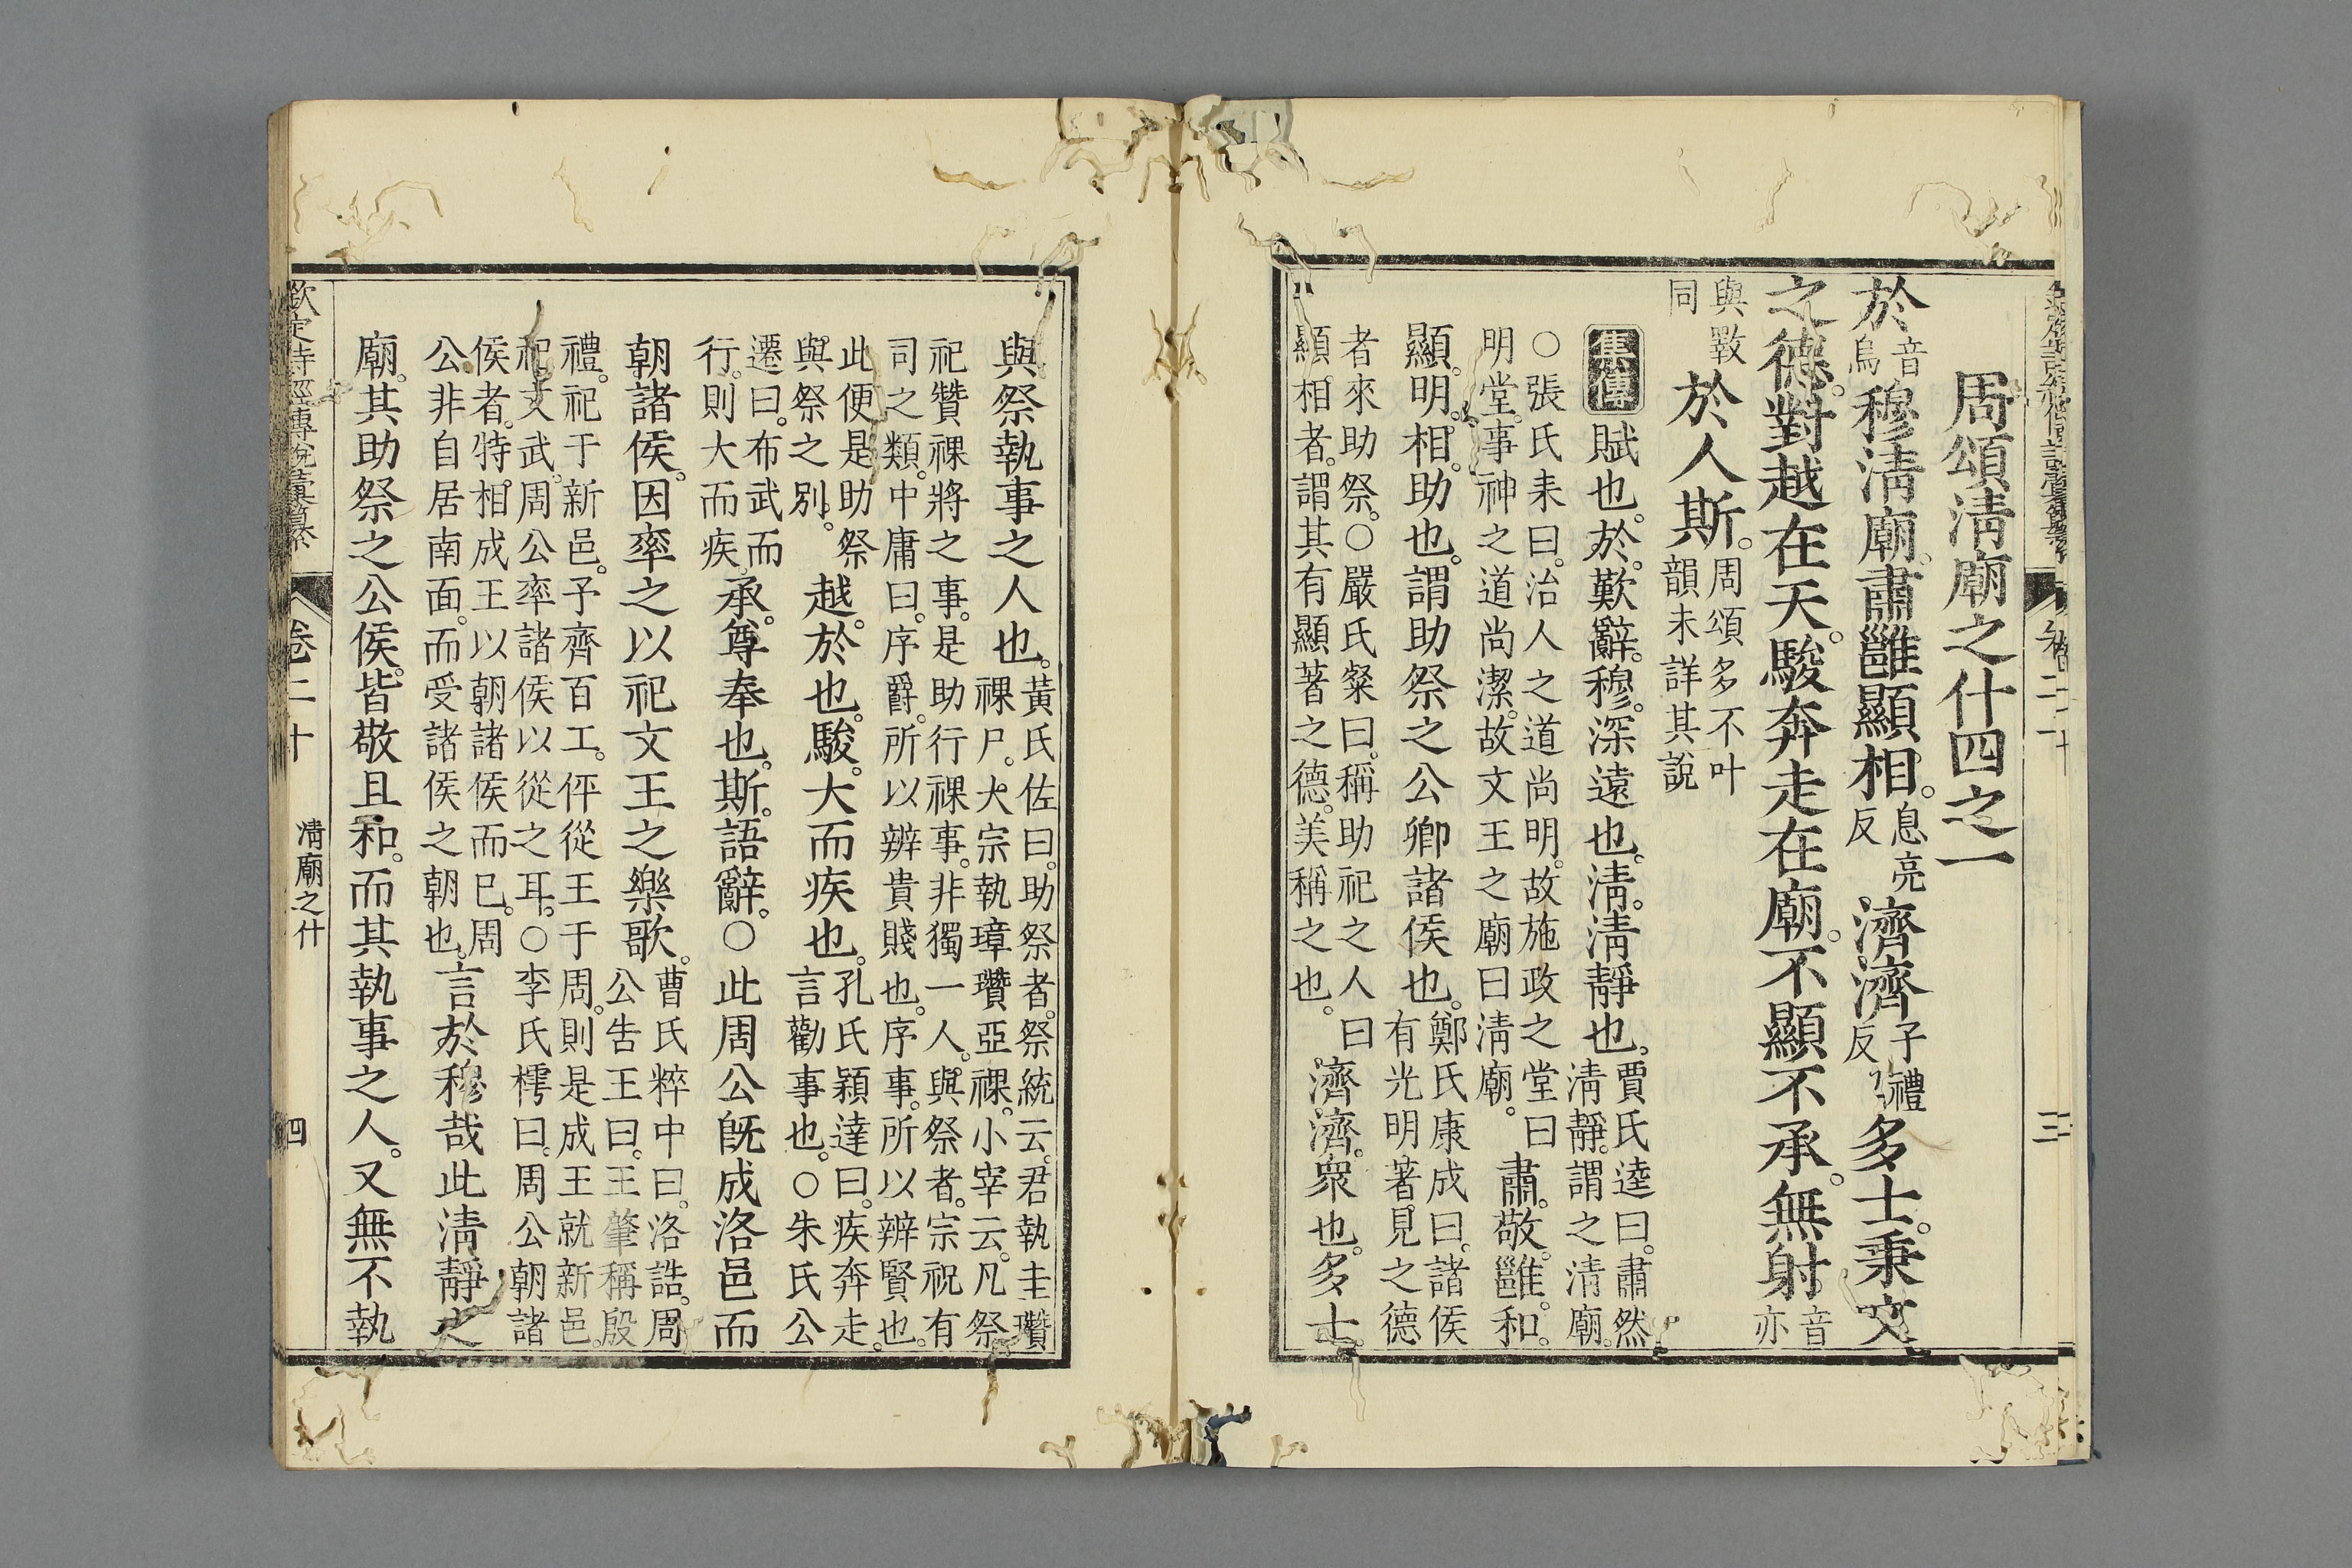 三
周頌清廟之什四之一
於音烏穆清廟。肅雝顯相。息亮反濟濟子禮反多士。秉文
之德。對越在天。駿奔走在廟。不顯不承。無射音亦
與斁同於人斯。周頌多不叶韻未詳其說
集傳賦也。於。歎辭。穆。深遠也。清。清靜也。賈氏逵曰。肅然清靜。謂之清廟。
○張氏耒曰。治人之道尚明。故施政之堂曰明堂。事神之道尚潔。故文王之廟曰清廟。肅。敬。雝。和。
顯。明。相。助也。謂助祭之公卿諸侯也。鄭氏康成曰。諸侯有光明著見之德
者來助祭。○嚴氏粲曰。稱助祀之人曰顯相者。謂其有顯著之德。美稱之也。濟濟。衆也。多士。
與祭執事之人也。黃氏佐曰。助祭者。祭統云。君執圭瓚祼尸。大宗執璋瓚亞祼。小宰云。凡祭
祀贊祼將之事。是助行祼事。非獨一人。與祭者。宗祝有司之類。中庸曰。序爵。所以辨貴賤也。序事。所以辨賢也。
此便是助祭與祭之別。越。於也。駿。大而疾也。孔氏穎達曰。疾奔走。言勸事也。○朱氏公
遷曰。布武而行。則大而疾。承。尊奉也。斯。語辭。○此周公旣成洛邑而
朝諸侯。因率之以祀文王之樂歌。曹氏粹中曰。洛誥。周公告王曰。王肇稱殷
禮。祀于新邑。予齊百工。伻從王于周。則是成王就新邑。祀文武。周公率諸侯以從之耳。○李氏樗曰。周公朝諸
侯者。特相成王以朝諸侯而已。周公非自居南面。而受諸侯之朝也。言於穆哉此清靜之
廟。其助祭之公侯。皆敬且和。而其執事之人。又無不執
欽定詩經傳說彙纂 卷二十 清廟之什 四